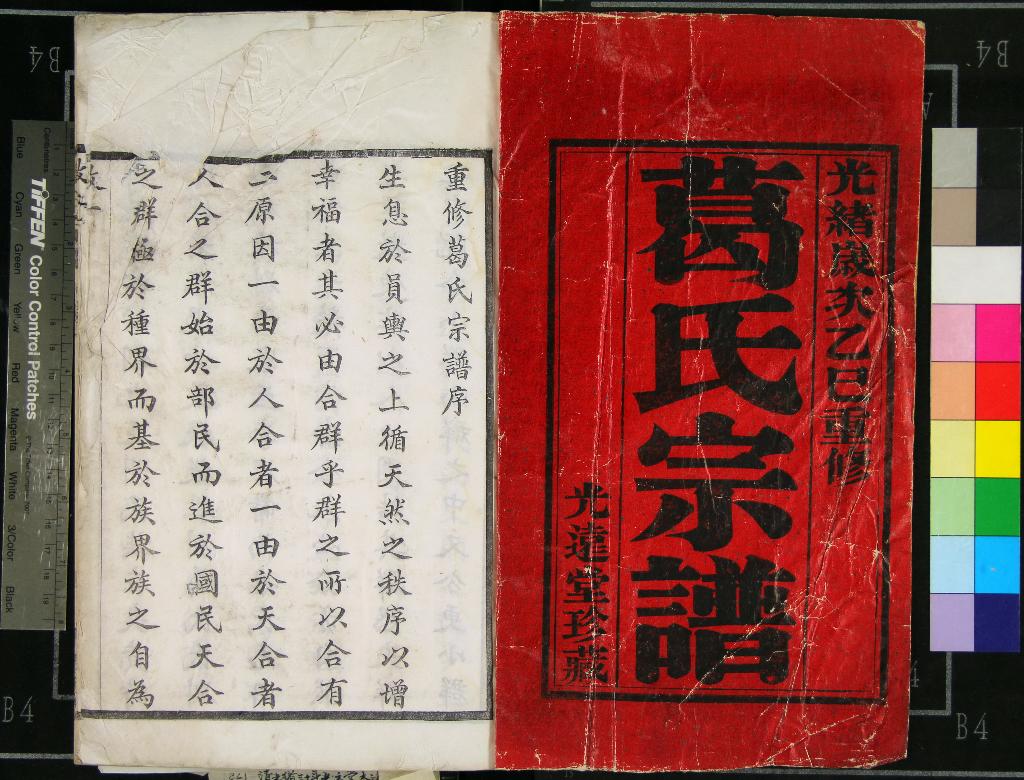 光緒歲次乙巳重修
葛氏宗譜
光遠堂珍藏
重修葛氏宗譜序
生息於員輿之上循天然之秩序以增
幸福者其必由合群乎群之所以合有
二原因一由於人合者一由於天合者
人合之群始於部民而進於國民天合
之群極於種界而基於族界族之自為
B4
B4
B4
B4
TIFFEN Color Control Patches
Centimetres
Blue
Cyan
Green
Yellow
Red
Magenta
White
3/Color
Black